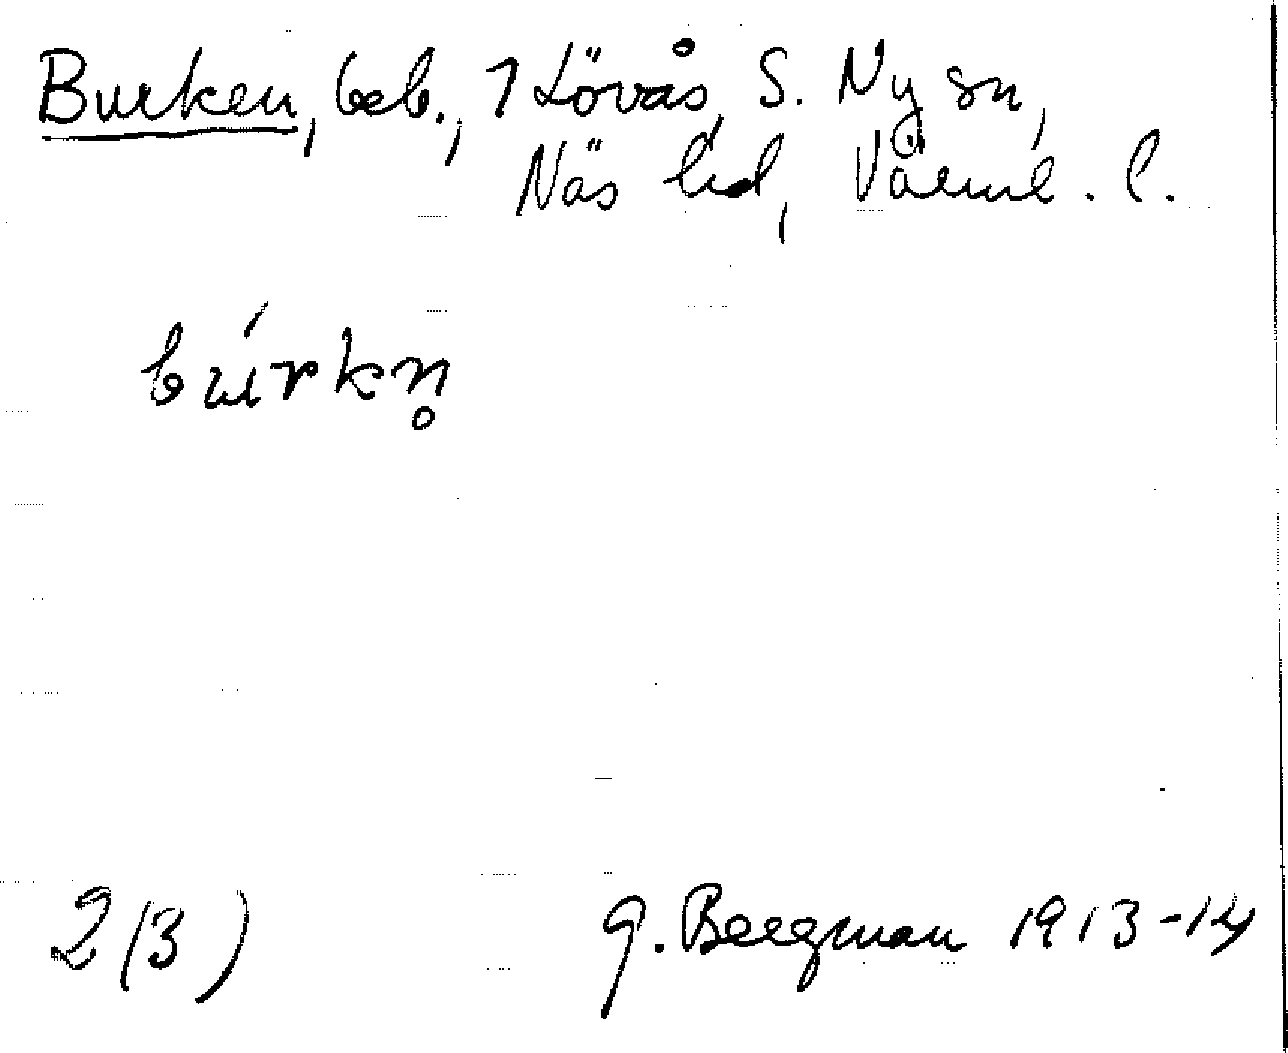 Burken, beb., 1 Lövås, S. Ny sn,
Näs hd, Värml. l.
búrkn̥
2 (3) G. Bergman 1913-14